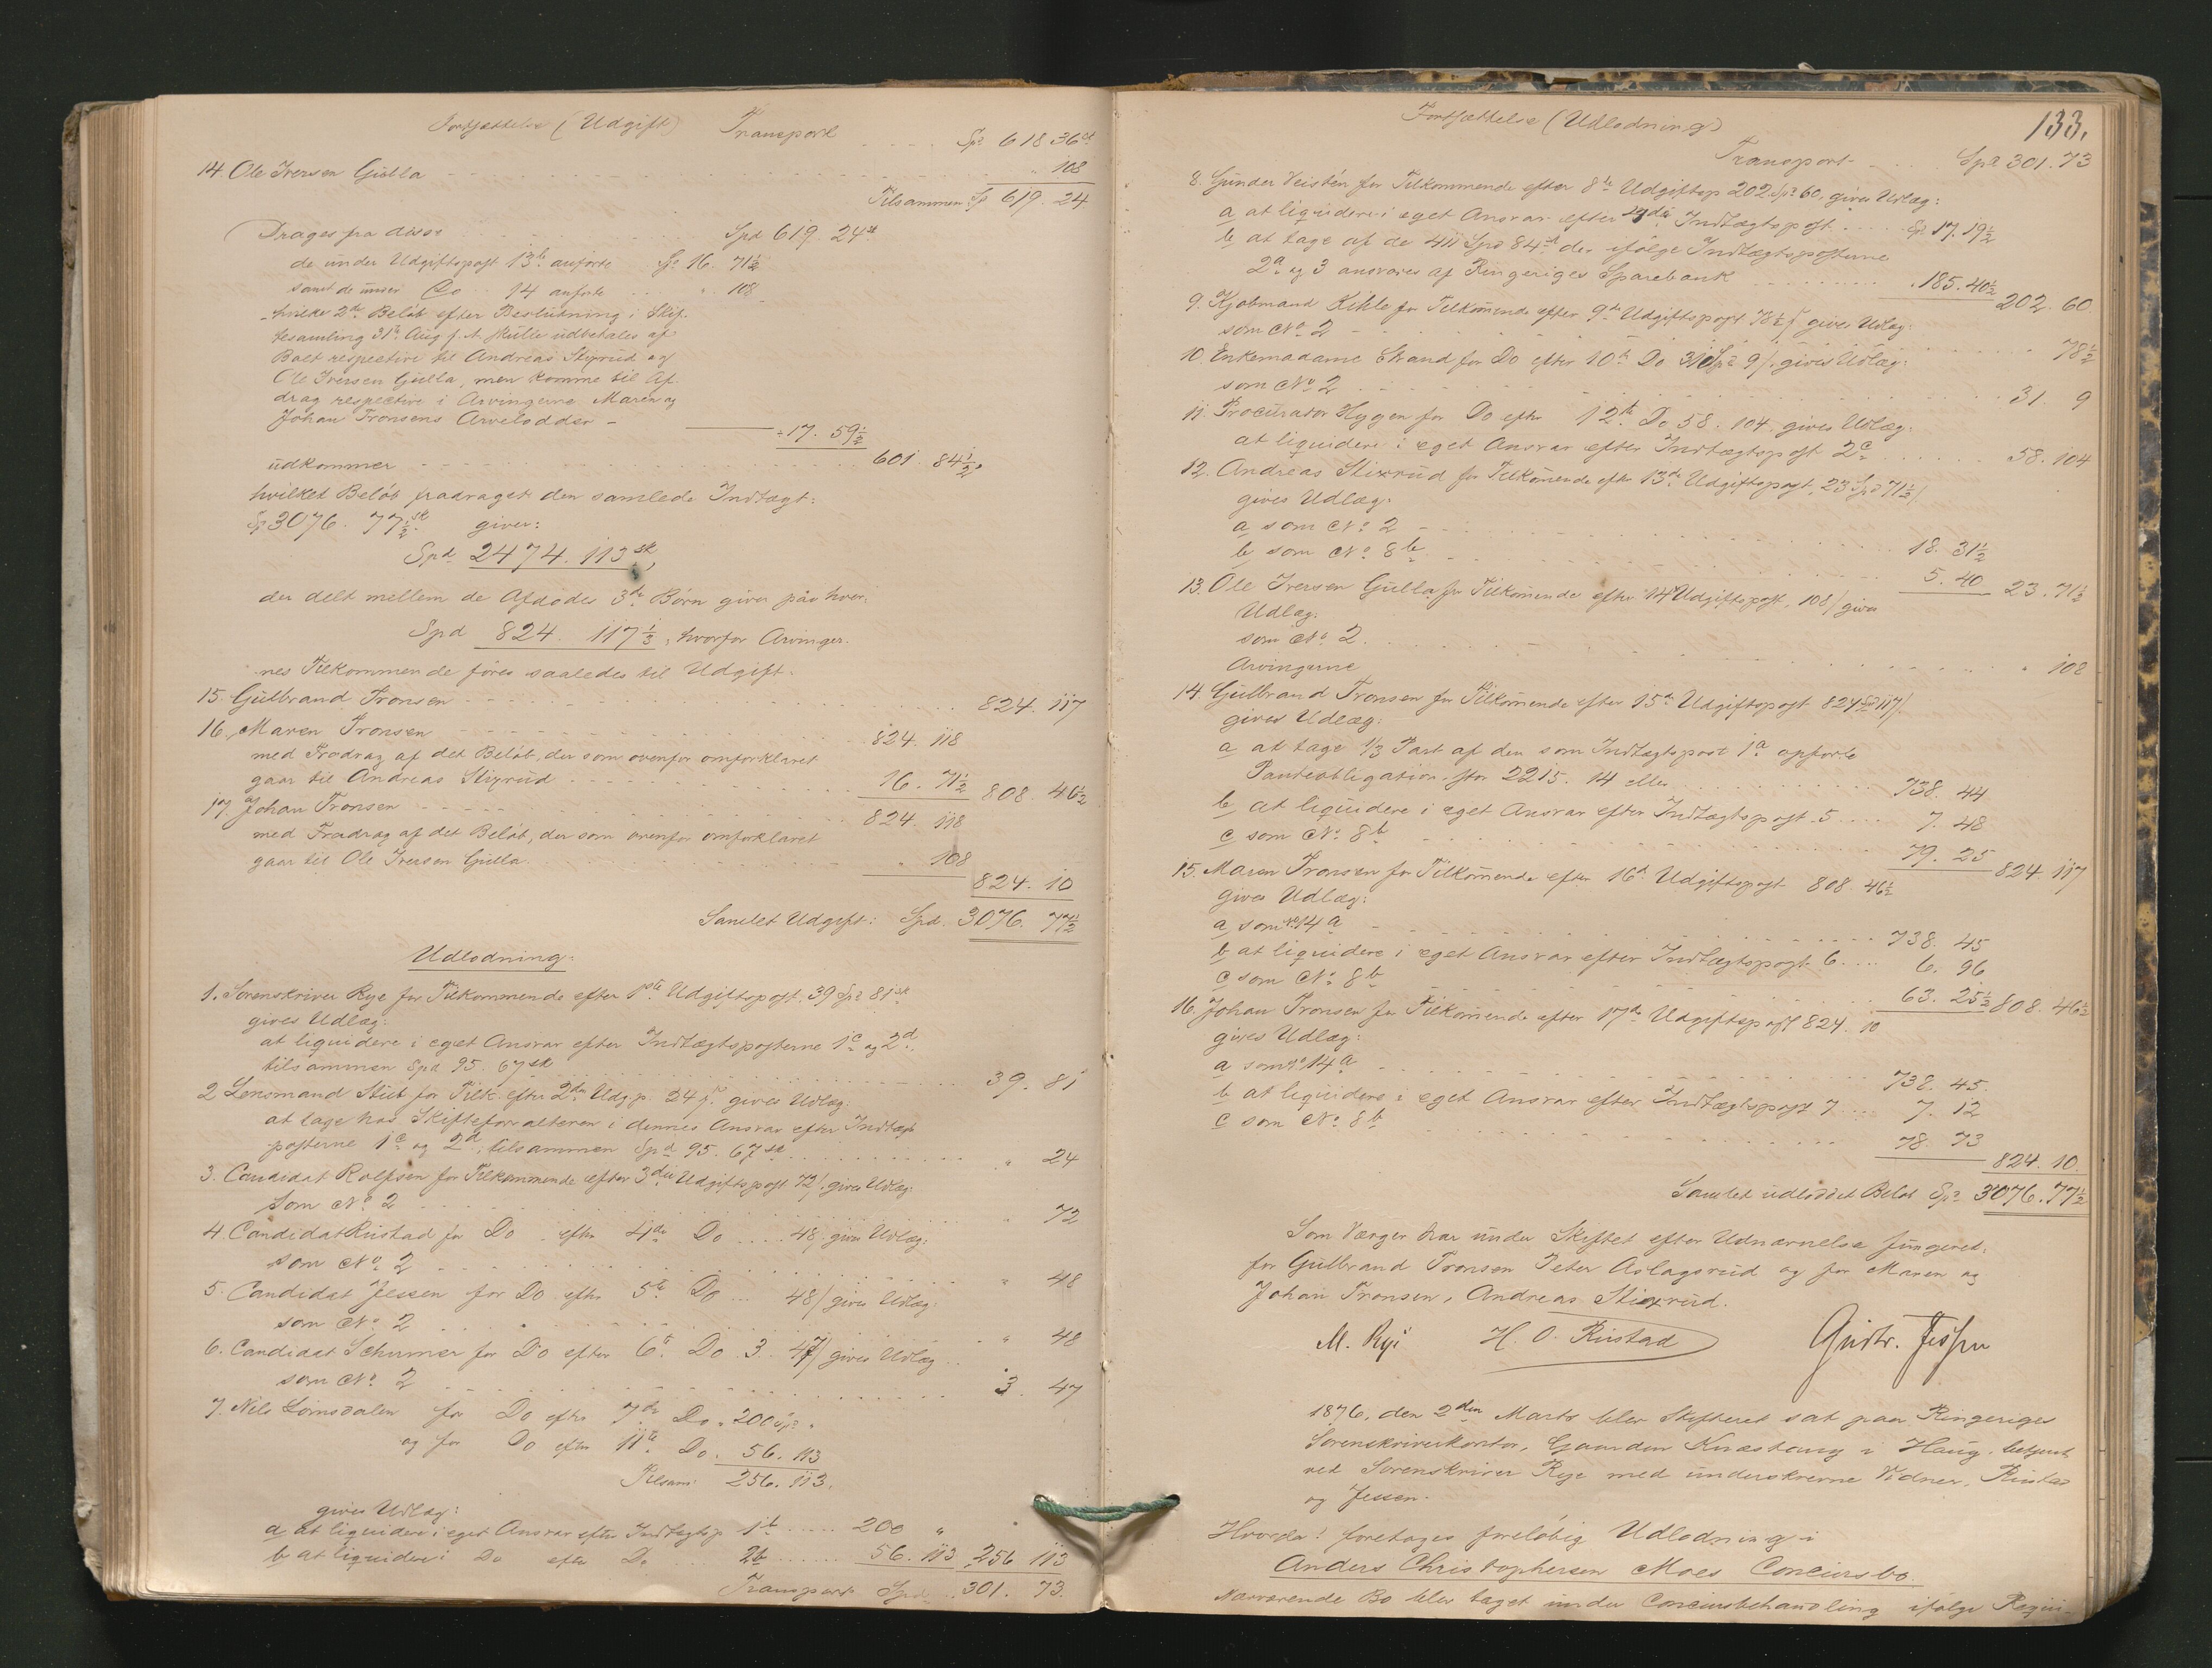 Fortsættelse (Udgift) Transport Spd 618 36sk
14. Ole Iversen Gulla " 108
Tilsammen Sp 619. 24
Drages fra disse Spd 619. 24sk
de under Udgiftspost 13de anførte Sp. 16. 71½
samt de under Do 14 anførte " 108
hvilke 2de Beløb efter Beslutning i Skif-
tesamling 31te Aug f. A. skulle udbetales af
Boet respective til Andreas Stixrud og
Ole Iversen Gulla, men komme til Af-
drag respective i Arvingerne Maren og
Johan Tronsens Arvelodder –
÷ 17. 59½
udkommer 601. 84½,
hvilket Beløb fradraget den samlede Indtægt:
Sp 3076. 77½sk giver:
Spd 2474. 113sk,
der delt mellem de Afdødes 3de Børn giver paa hver:
Spd 824. 117⅓, hvorfor Arvinger-
nes Tilkommende føres saaledes til Udgift.
15. Gulbrand Tronsen 824. 117
16. Maren Tronsen 824. 118
med Fradrag af det Beløb, der som ovenfor omforklaret
gaar til Andreas Stixrud 16. 71½ 808. 46½
17. Johan Tronsen 824. 118
med Fradrag af det Beløb, der som ovenfor omforklaret
gaar til Ole Iversen Gulla " 108
824. 10
Samlet Udgift: Spd. 3076. 77½
Udlodning:
1. Sorenskriver Rye for Tilkommende efter 1ste Udgiftspost, 39 Spd 81sk
gives Udlæg:
at liquidere i eget Ansvar efter Indtægtsposterne 1c og 2d
tilsammen Spd 95. 67sk 39. 81
2 Lensmand Stub for Tilk. efter 2den Udg.p. 24 s. gives Udlæg:
at tage hos Skifteforvalteren i dennes Ansvar efter Indtægts
posterne 1c og 2d, tilsammen Spd 95. 67sk " 24
3. Candidat Rolfsen for Tilkommende efter 3die Udgiftspost 72/ gives Udlæg:
som No 2 " 72
4. Candidat Rustad for Do efter 4de Do 48/ gives Udlæg:
som No 2 " 48
5. Candidat Jessen for Do efter 5te Do 48/ gives Udlæg:
som No 2 " 48
6. Candidat Schumer for Do efter 6te Do 3. 47/ gives Udlæg
som No 2 3. 47
7. Nils Lomsdalen for Do efter 7de Do 200 Spd "
og for Do efter 11te Do 56. 113
Tilsam: 256. 113.
gives Udlæg:
a at liquidere i eget Ansvar efter Indtægtsp 1b 200 "
b at liquidere i Do efter Do 2b 56. 113 256 113
Transport Spd 301. 73.
133.
Fortsættelse (Udlodning)
Transport Spd 301. 73
8. Gunder Veistén for Tilkommende efter 8de Udgiftsp 202 Spd 60, gives Udlæg:
a at liquidere i eget Ansvar efter 4de Indtægtspost Sp. 17. 19½
b at tage af de 411 Spd 84sk der ifølge Indtægtsposterne
2a og 3 ansvares af Ringeriges Sparebank " 185. 40½ 202. 60
9. Kjøbmand Kihle for Tilkommende efter 9de Udgiftspost 78½ s gives Udlæg:
som No 2 " 78½
10. Enkemadame Strand for Do efter 10de Do 31 Spd 9/ gives Udlæg:
som No 2 31. 9
11. Procurator Hygen for Do efter 12te Do 58. 104. gives Udlæg:
at liquidere i eget Ansvar efter Indtægtspost 2c 58. 104
12. Andreas Stixrud for Tilkommende efter 13de Udgiftspost, 23 Spd 71½/
gives Udlæg:
a som No 2 18. 31½
b som No 8b 5. 40 23. 71½
13. Ole Iversen Gulla for Tilkommende efter 14 Udgiftspost, 108/ gives
Udlæg:
som No 2 " 108
Arvingerne
14. Gulbrand Tronsen for Tilkommende efter 15de Udgiftspost 824 Spd 117/
gives Udlæg:
a at tage 1/3 Part af den som Indtægtspost 1a opførte
Panteobligation, stor 2215. 14 eller 738. 44
b at liquidere i eget Ansvar efter Indtægtspost 5 7. 48
c som No 8b 79. 25 824. 117
15. Maren Tronsen for Tilkommende efter 16de Udgiftspost 808 46½
gives Udlæg:
a som No 14a 738. 45
b at liquidere i eget Ansvar efter Indtægtspost 6. 6. 96
c som No 8b 63. 25½ 808. 46½
16. Johan Tronsen for Tilkommende efter 17de Udgiftspost 824. 10
gives Udlæg:
a som No 14a 738. 45.
b at liquidere i eget Ansvar efter Indtægtspost 7 7. 12
c som No 8b 78. 73
824. 10.
Samlet udloddet Beløb Spd 3076. 77½
Som Værger har under Skiftet efter Udnævnelse fungeret:
for Gulbrand Tronsen Peter Aslagsrud og for Maren og
Johan Tronsen, Andreas Stixrud.
M. Rye H. O. Rustad Gustv. Jessen
1876, den 2den Marts blev Skifteret sat paa Ringeriges
Sorenskriverkontor, Gaarden Knæstang i Haug, betjent
ved Sorenskriver Rye med underskrevne Vidner, Rustad
og Jessen.
Hvorda! foretoges foreløbig Udlodning i
Anders Christophersen Moes Concursbo.
Nærværende Bo blev taget under Concursbehandling ifølge Requi-